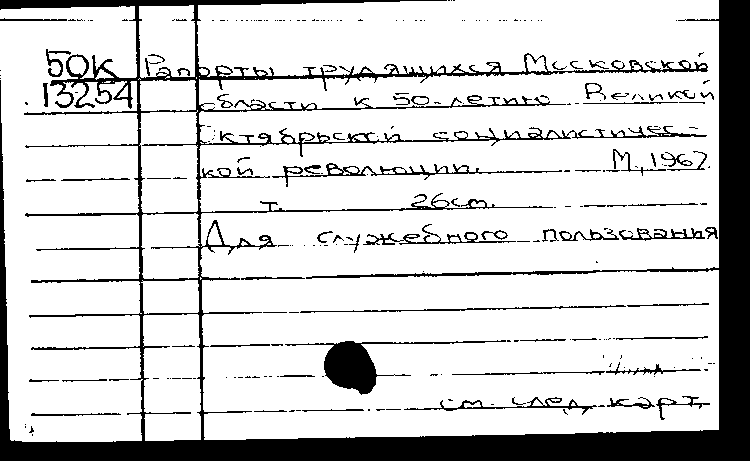 50К Рапорты трудящихся Московской
13254 области к 50-летию Великой
Октябрьской социалистичес-
кой революции. М., 1967.
т. 26см.
Для служебного пользования
см. след. карт.